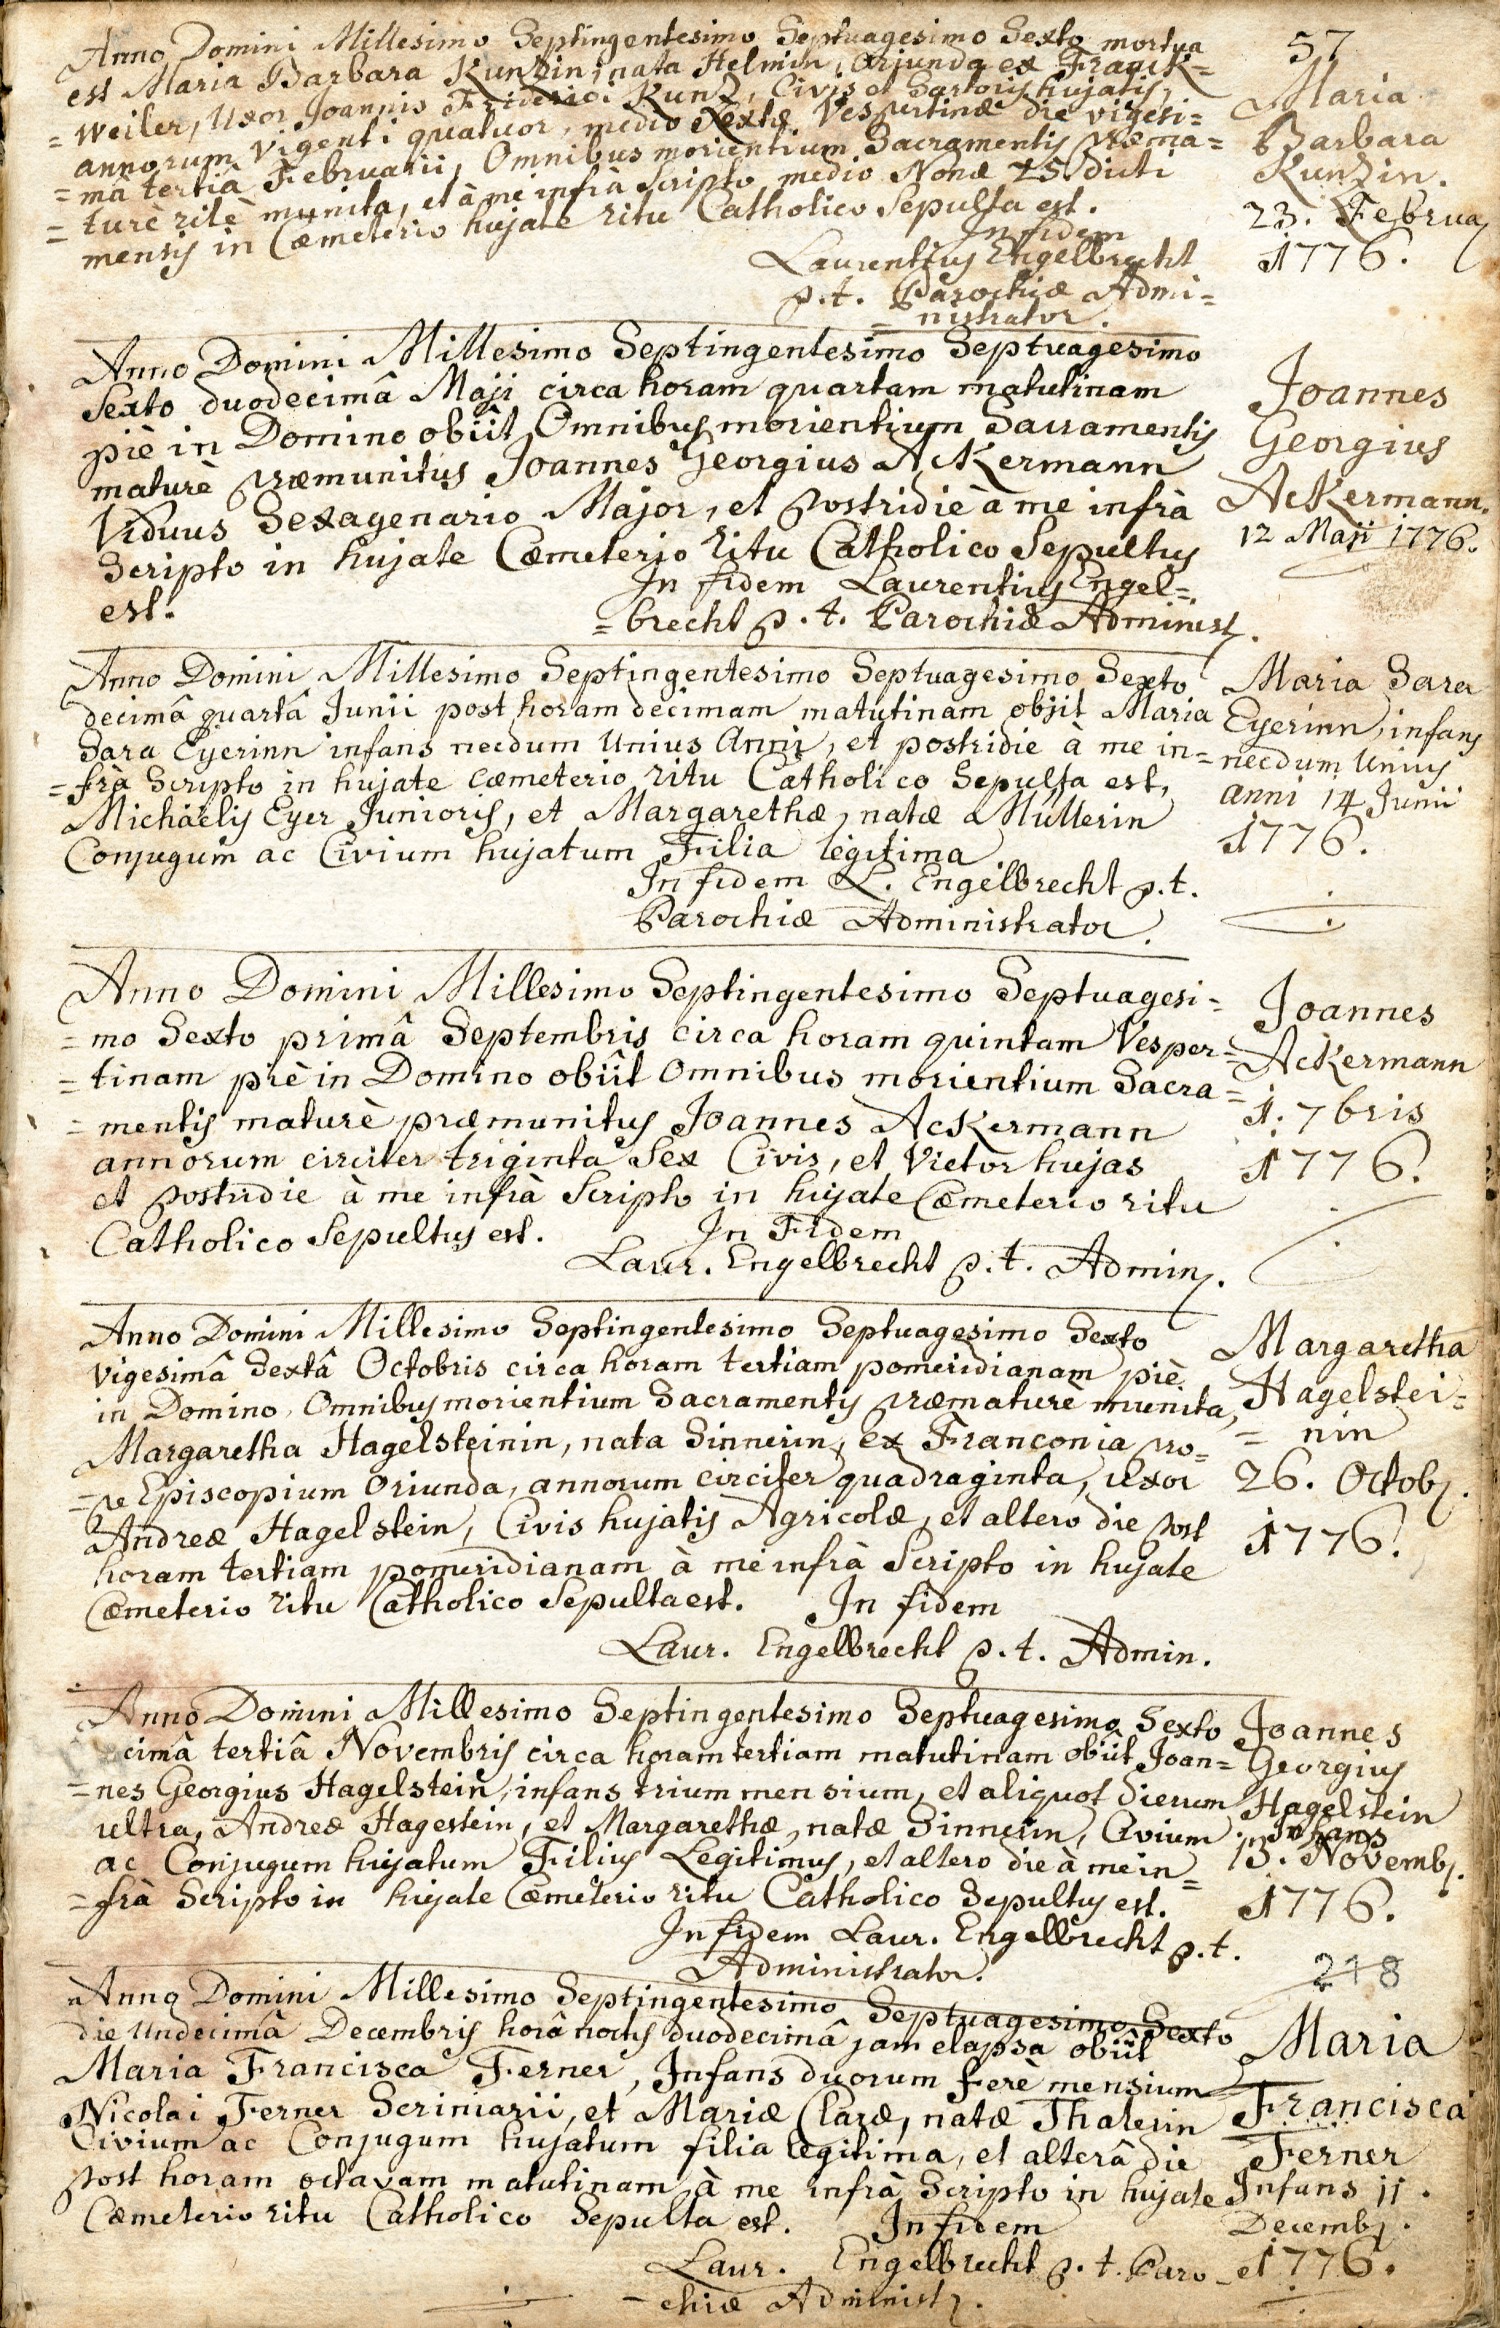 57
Anno Domini Millesimo Septingentesimo Septuagesimo Sexto mortua
est Maria Barbara Kunzin, nata Helmin, orjunda ex Franck=
=Weiler, Uxor Joannis Friderici Kunz, Civis et Sartoris hujatis,
annorum Vigenti quatuor, medio Sextæ Vespertinæ die vigesi=
=mâ tertiâ Februarii, Omnibus morientium Sacramentis præma=
=turè ritè munita, et à me infrà Scripto medio Nonæ 25. dicti
mensis in Cæmeterio hujate ritu Catholico Sepulta est.
In fidem
Laurentius Engelbrecht
p.t. Parochiæ Admi=
=nistrator.
Maria
Barbara
Kunzin.
23. Februa
1776.
Anno Domini Millesimo Septingentesimo Septuagesimo
Sexto duodecimâ Maji circa horam quartam matutinam
piè in Domino obiit Omnibus morientium Sacramentis
maturè præmunitus Joannes Georgius Ackermann
Viduus Sexagenario Major, et postridie à me infrà
Scripto in hujate Cæmeterio ritu Catholico Sepultus
est.
In fidem Laurentius Engel=
=brecht p.t. Parochiæ Administ.
Joannes
Georgius
Ackermann.
12 Maji 1776.
Anno Domini Millesimo Septingentesimo Septuagesimo Sexto
decimâ quartâ Junii post horam decimam matutinam objit Maria
Sara Eyerinn infans necdum Unius Anni, et postridie à me in=
=frà Scripto in hujate cæmeterio ritu Catholico Sepulta est,
Michaelis Eyer Junioris, et Margarethæ, natæ Müllerin
Conjugum ac Civium hujatum Filia legitima.
In fidem L. Engelbrecht p.t.
Parochiæ Administrator.
Maria Sara
Eyerinn, infans
necdum Unius
anni 14 Junii
1776.
Anno Domini Millesimo Septingentesimo Septuagesi=
=mo Sexto primâ Septembris circa horam quintam Vesper=
=tinam piè in Domino obiit Omnibus morientium Sacra=
=mentis maturè præmunitus Joannes Ackermann
annorum circiter triginta Sex Civis, et Vietor hujas
et postridie à me infrà Scripto in hujate Cæmeterio ritu
Catholico Sepultus est. In Fidem
Laur. Engelbrecht p.t. Admin.
Joannes
Ackermann
1. 7bris
1776.
Anno Domini Millesimo Septingentesimo Septuagesimo Sexto
vigesimâ Sextâ Octobris circa horam tertiam pomeridianam piè
in Domino, Omnibus morientium Sacramentis præmaturè munita,
Margaretha Hagelsteinin, nata Sinnerin, ex Franconia pro=
=pe Episcopium Oriunda, annorum circiter quadraginta, uxor
Andreæ Hagelstein, Civis hujatis Agricolæ, et altero die post
horam tertiam pomeridianam à me infrà Scripto in hujate
Cæmeterio ritu Catholico Sepulta est. In fidem
Laur. Engelbrecht p.t. Admin.
Margaretha
Hagelstei=
=nin
26. Octob.
1776.
Anno Domini Millesimo Septingentesimo Septuagesimo Sexto
cimâ tertiâ Novembris circa horam tertiam matutinam obiit Joan=
=nes Georgius Hagelstein, infans trium mensium, et aliquot dierum
ultra, Andreæ Hagestein, et Margarethæ, natæ Sinnerin, Civium
ac Conjugum hujatum Filius Legitimus, et altero die à me in=
=frà Scripto in hujate Cæmeterio ritu Catholico Sepultus est.
In fidem Laur. Engelbrecht p.t.
Administrator.
Joannes
Georgius
Hagelstein
Infans
13. Novemb.
1776.
218
Anno Domini Millesimo Septingentesimo Septuagesimo Sexto
die Undecimâ Decembris horâ noctis duodecimâ jam elapsa obiit
Maria Francisca Ferner, Infans duorum ferè mensium
Nicolai Ferner Scriniarii, et Mariæ Claræ, natæ Thalerin
Civium ac Conjugum hujatum filia legitima, et alterâ die
post horam octavam matutinam à me infrà Scripto in hujate
Cæmeterio ritu Catholico Sepulta est. In fidem
Laur. Engelbrecht p.t. Paro
-chiæ Administ.
Maria
Francisca
Ferner
Infans 11.
Decemb.
1776.